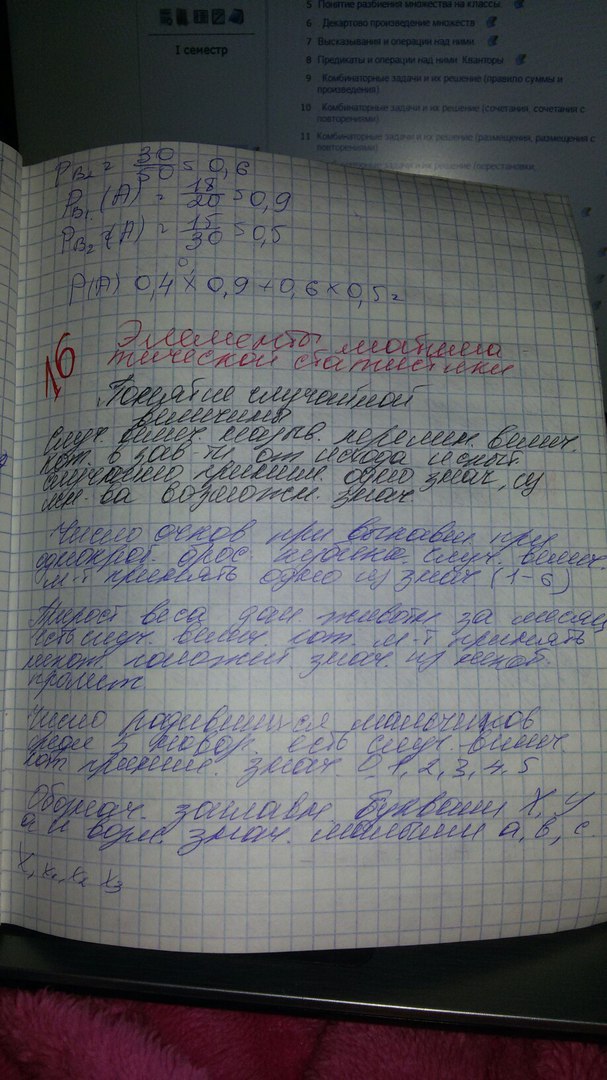 I семестр
5 Понятие разбиения множества на классы
6 Декартово произведение множеств
7 Высказывания и операции над ними
8 Предикаты и операции над ними Кванторы
9 Комбинаторные задачи и их решение (правило суммы и
произведения)
10 Комбинаторные задачи и их решение (сочетания, сочетания с
повторениями)
11 Комбинаторные задачи и их решение (размещения, размещения с
повторениями)
Комбинаторные задачи и их решение
P B₂ = 30/50 = 0,6
P B₁ (A) = 18/20 = 0,9
P B₂ (A) = 15/30 = 0,5
P(A) 0,4 × 0,9 + 0,6 × 0,5 =
16
Элементы матема
тической статистики
Понятие случайной
величины
Случ. велич. назыв. перемен. велич.
кот. в зав-ти от исхода испыт.
случайно приним. одно знач. из
мн-ва возможн. знач.
Число очков при выпавш. при
однократ. брос. кубика случ. велич.
м-т принять одно из знач (1-6)
Прирост веса дом. животн за месяц
есть случ. велич кот. м-т принять
знач. из
промеж.
Число родившихся мальчиков
среди 5 новор. есть случ. велич
кот приним. знач. 0, 1, 2, 3, 4, 5
Обознач. заглавн. буквами X, Y
а и возм. знач. малыми a, b, c.
X, x₁, x₂ x₃